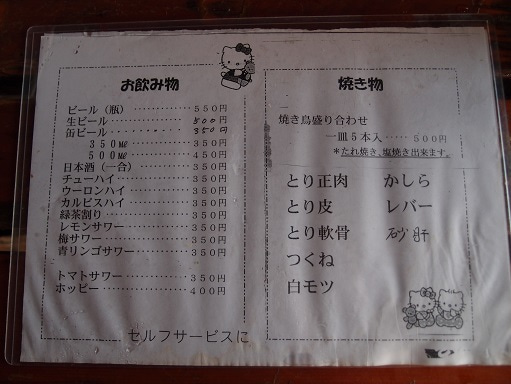 お飲み物
ビール（瓶）‥‥‥‥‥５５０円
生ビール‥‥‥‥‥‥５００円
缶ビール‥‥‥‥‥‥３５０円
３５０㎖‥‥‥‥‥３５０円
５００㎖‥‥‥‥‥４５０円
日本酒（一合）‥‥‥‥３５０円
チューハイ‥‥‥‥‥‥３５０円
ウーロンハイ‥‥‥‥‥３５０円
カルピスハイ‥‥‥‥‥３５０円
緑茶割り‥‥‥‥‥‥３５０円
レモンサワー‥‥‥‥‥３５０円
梅サワー‥‥‥‥‥‥３５０円
青リンゴサワー‥‥‥‥３５０円
トマトサワー‥‥‥‥‥３５０円
ホッピー‥‥‥‥‥‥４００円
セルフサービスに
焼き物
焼き鳥盛り合わせ
一皿５本入‥‥‥５００円
＊たれ焼き、塩焼き出来ます。
とり正肉　かしら
とり皮　レバー
とり軟骨　砂肝
つくね
白モツ